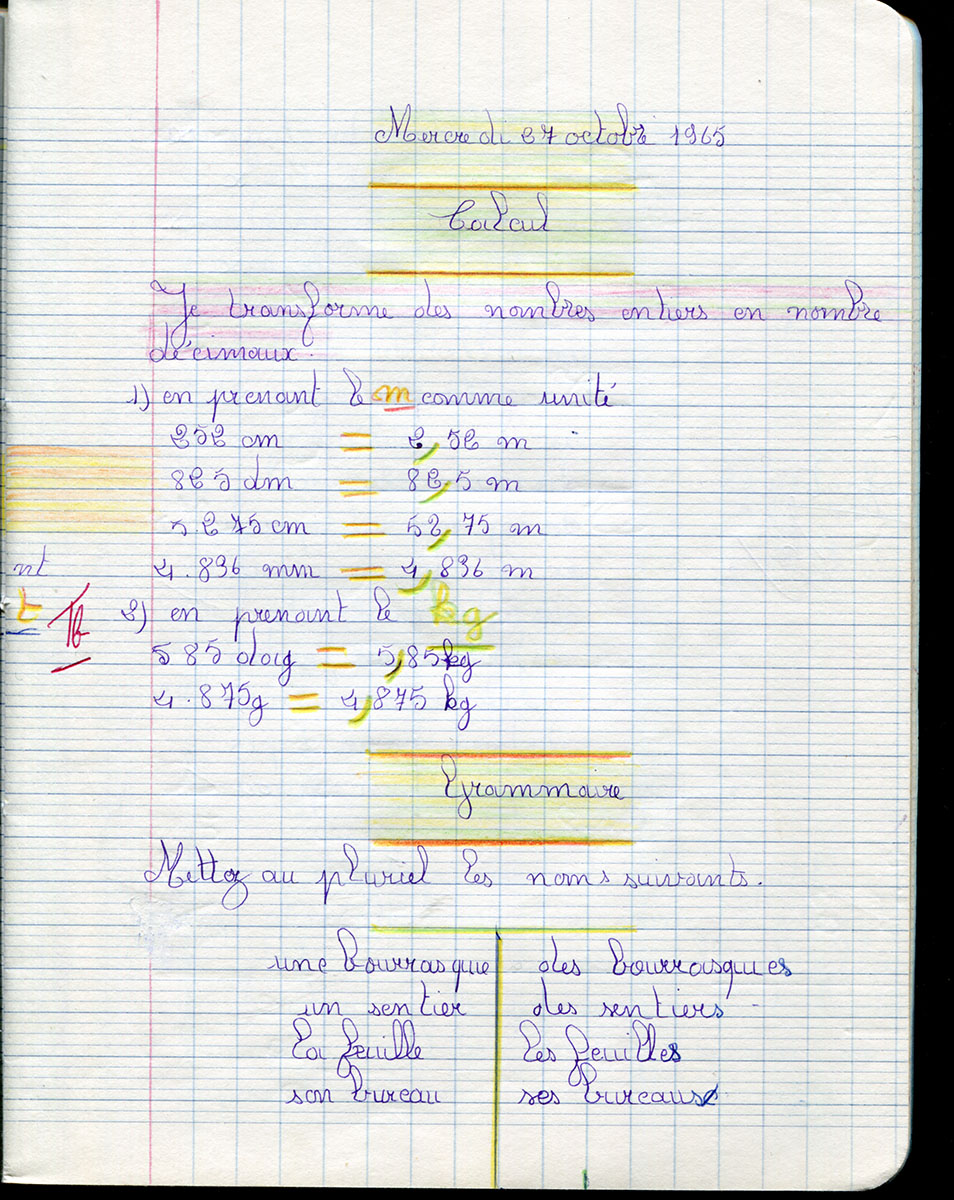 Mercredi 27 octobre 1965
Calcul
Je transforme des nombres entiers en nombre
décimaux.
1) en prenant le m comme unité
252 cm = 2,52 m
825 dm = 82,5 m
5275 cm = 52,75 m
4.836 mm = 4,836 m
nt
t
2) en prenant le kg
585 dag = 5,85 kg
4.875g = 4,875 kg
Grammaire
Mettez au pluriel les noms suivants.
une bourrasque des bourrasques
un sentier des sentiers
la feuille les feuilles
son bureau ses bureaux